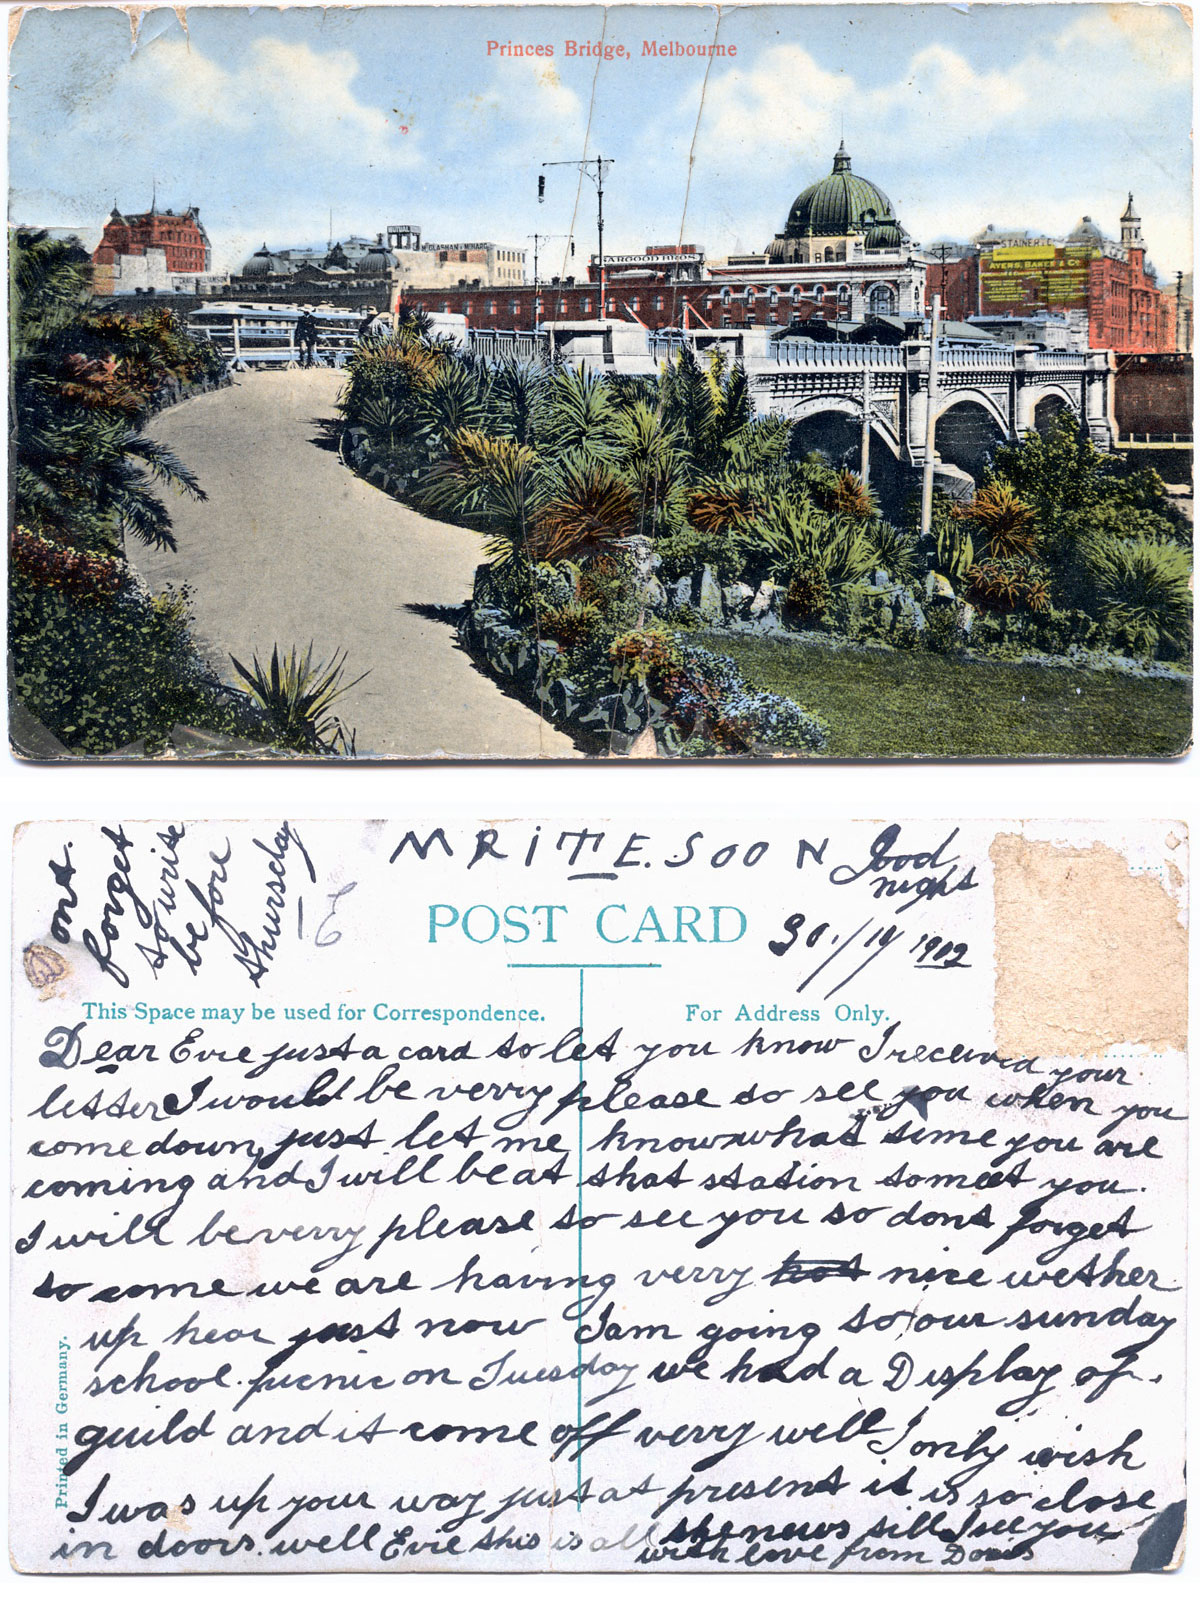 Princes Bridge, Melbourne
McGLASHAN & McHARG
SARGOOD BROS
STAINER
AYERS, BAKER & Co
ont
forget
to write
be fore
thursday
WRITE. SOON
Good
night
POST CARD
30./11/1902
This Space may be used for Correspondence.
For Address Only.
Dear Evie just a card to let you know I received your
letter I would be verry please to see you when you
come down, just let me know what time you are
coming and I will be at that station to meet you.
I will be verry please to see you so dont forget
to come we are having verry hot nice wether
up hear just now I am going to our sunday
school. picnic on Tuesday we had a Display of.
guild and it come off verry well I only wish
I was up your way just at present it is so close
in doors. well Evie this is all the news till I see you
with love from Doris
Printed in Germany.